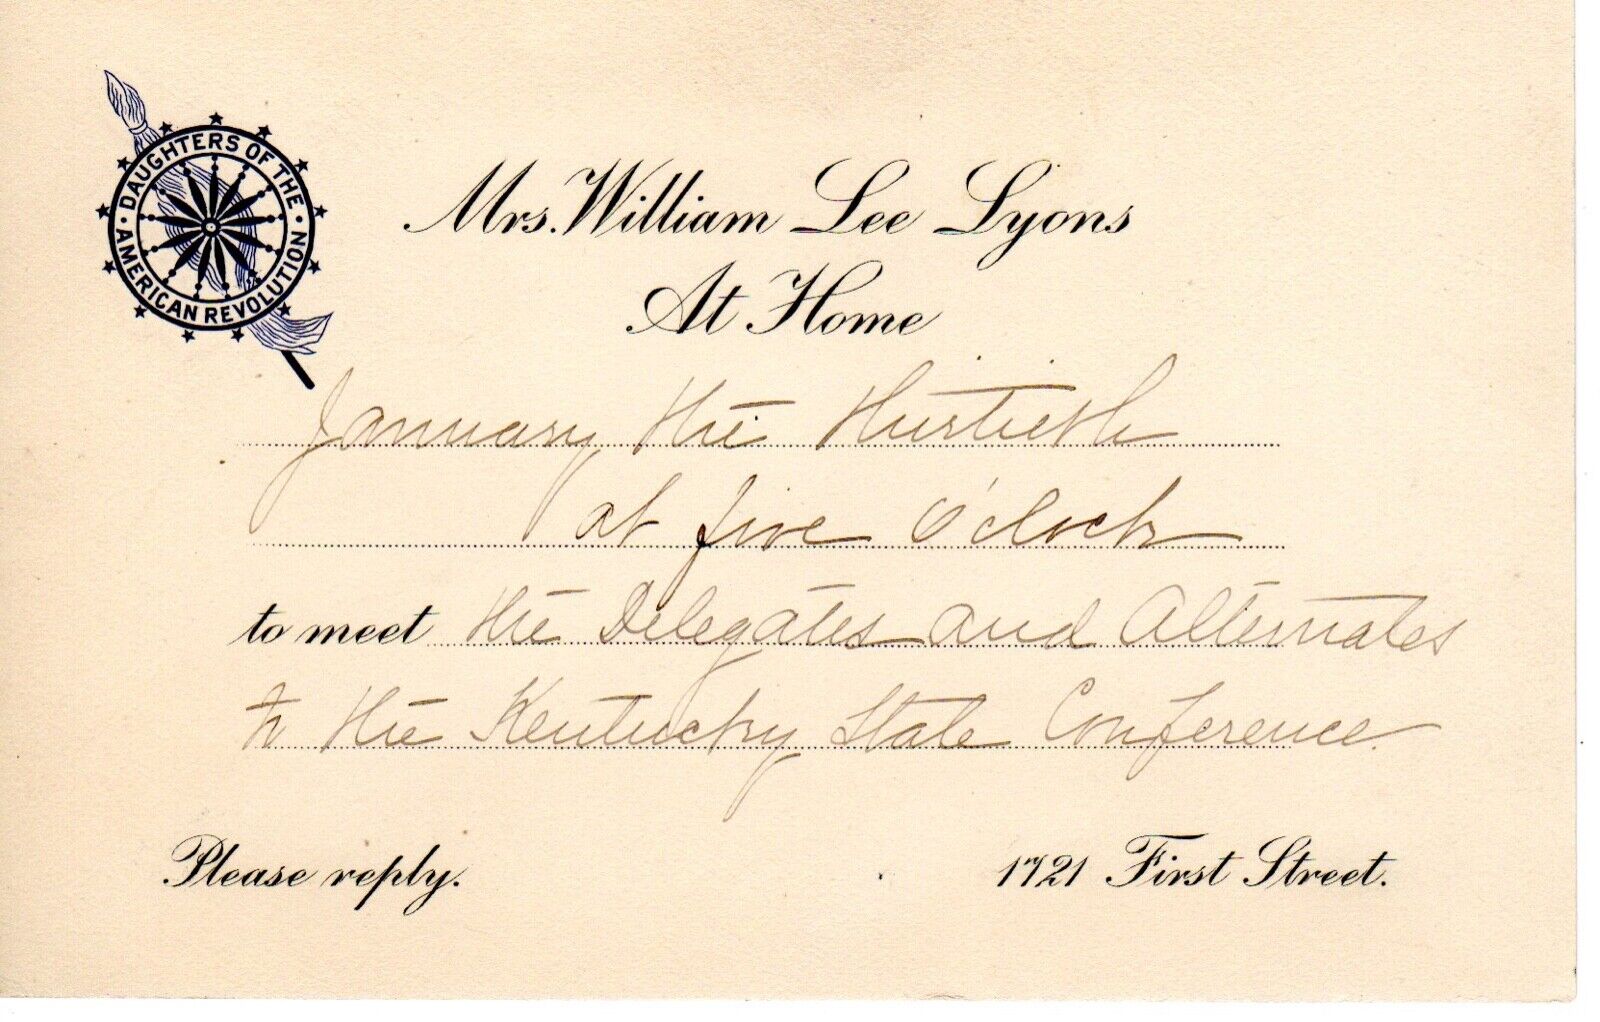 DAUGHTERS OF THE
AMERICAN REVOLUTION
Mrs. William Lee Lyons
At Home
January the thirtieth
at five o'clock
to meet the Delegates and Alternates
to the Kentucky State Conference.
Please reply.
1721 First Street.